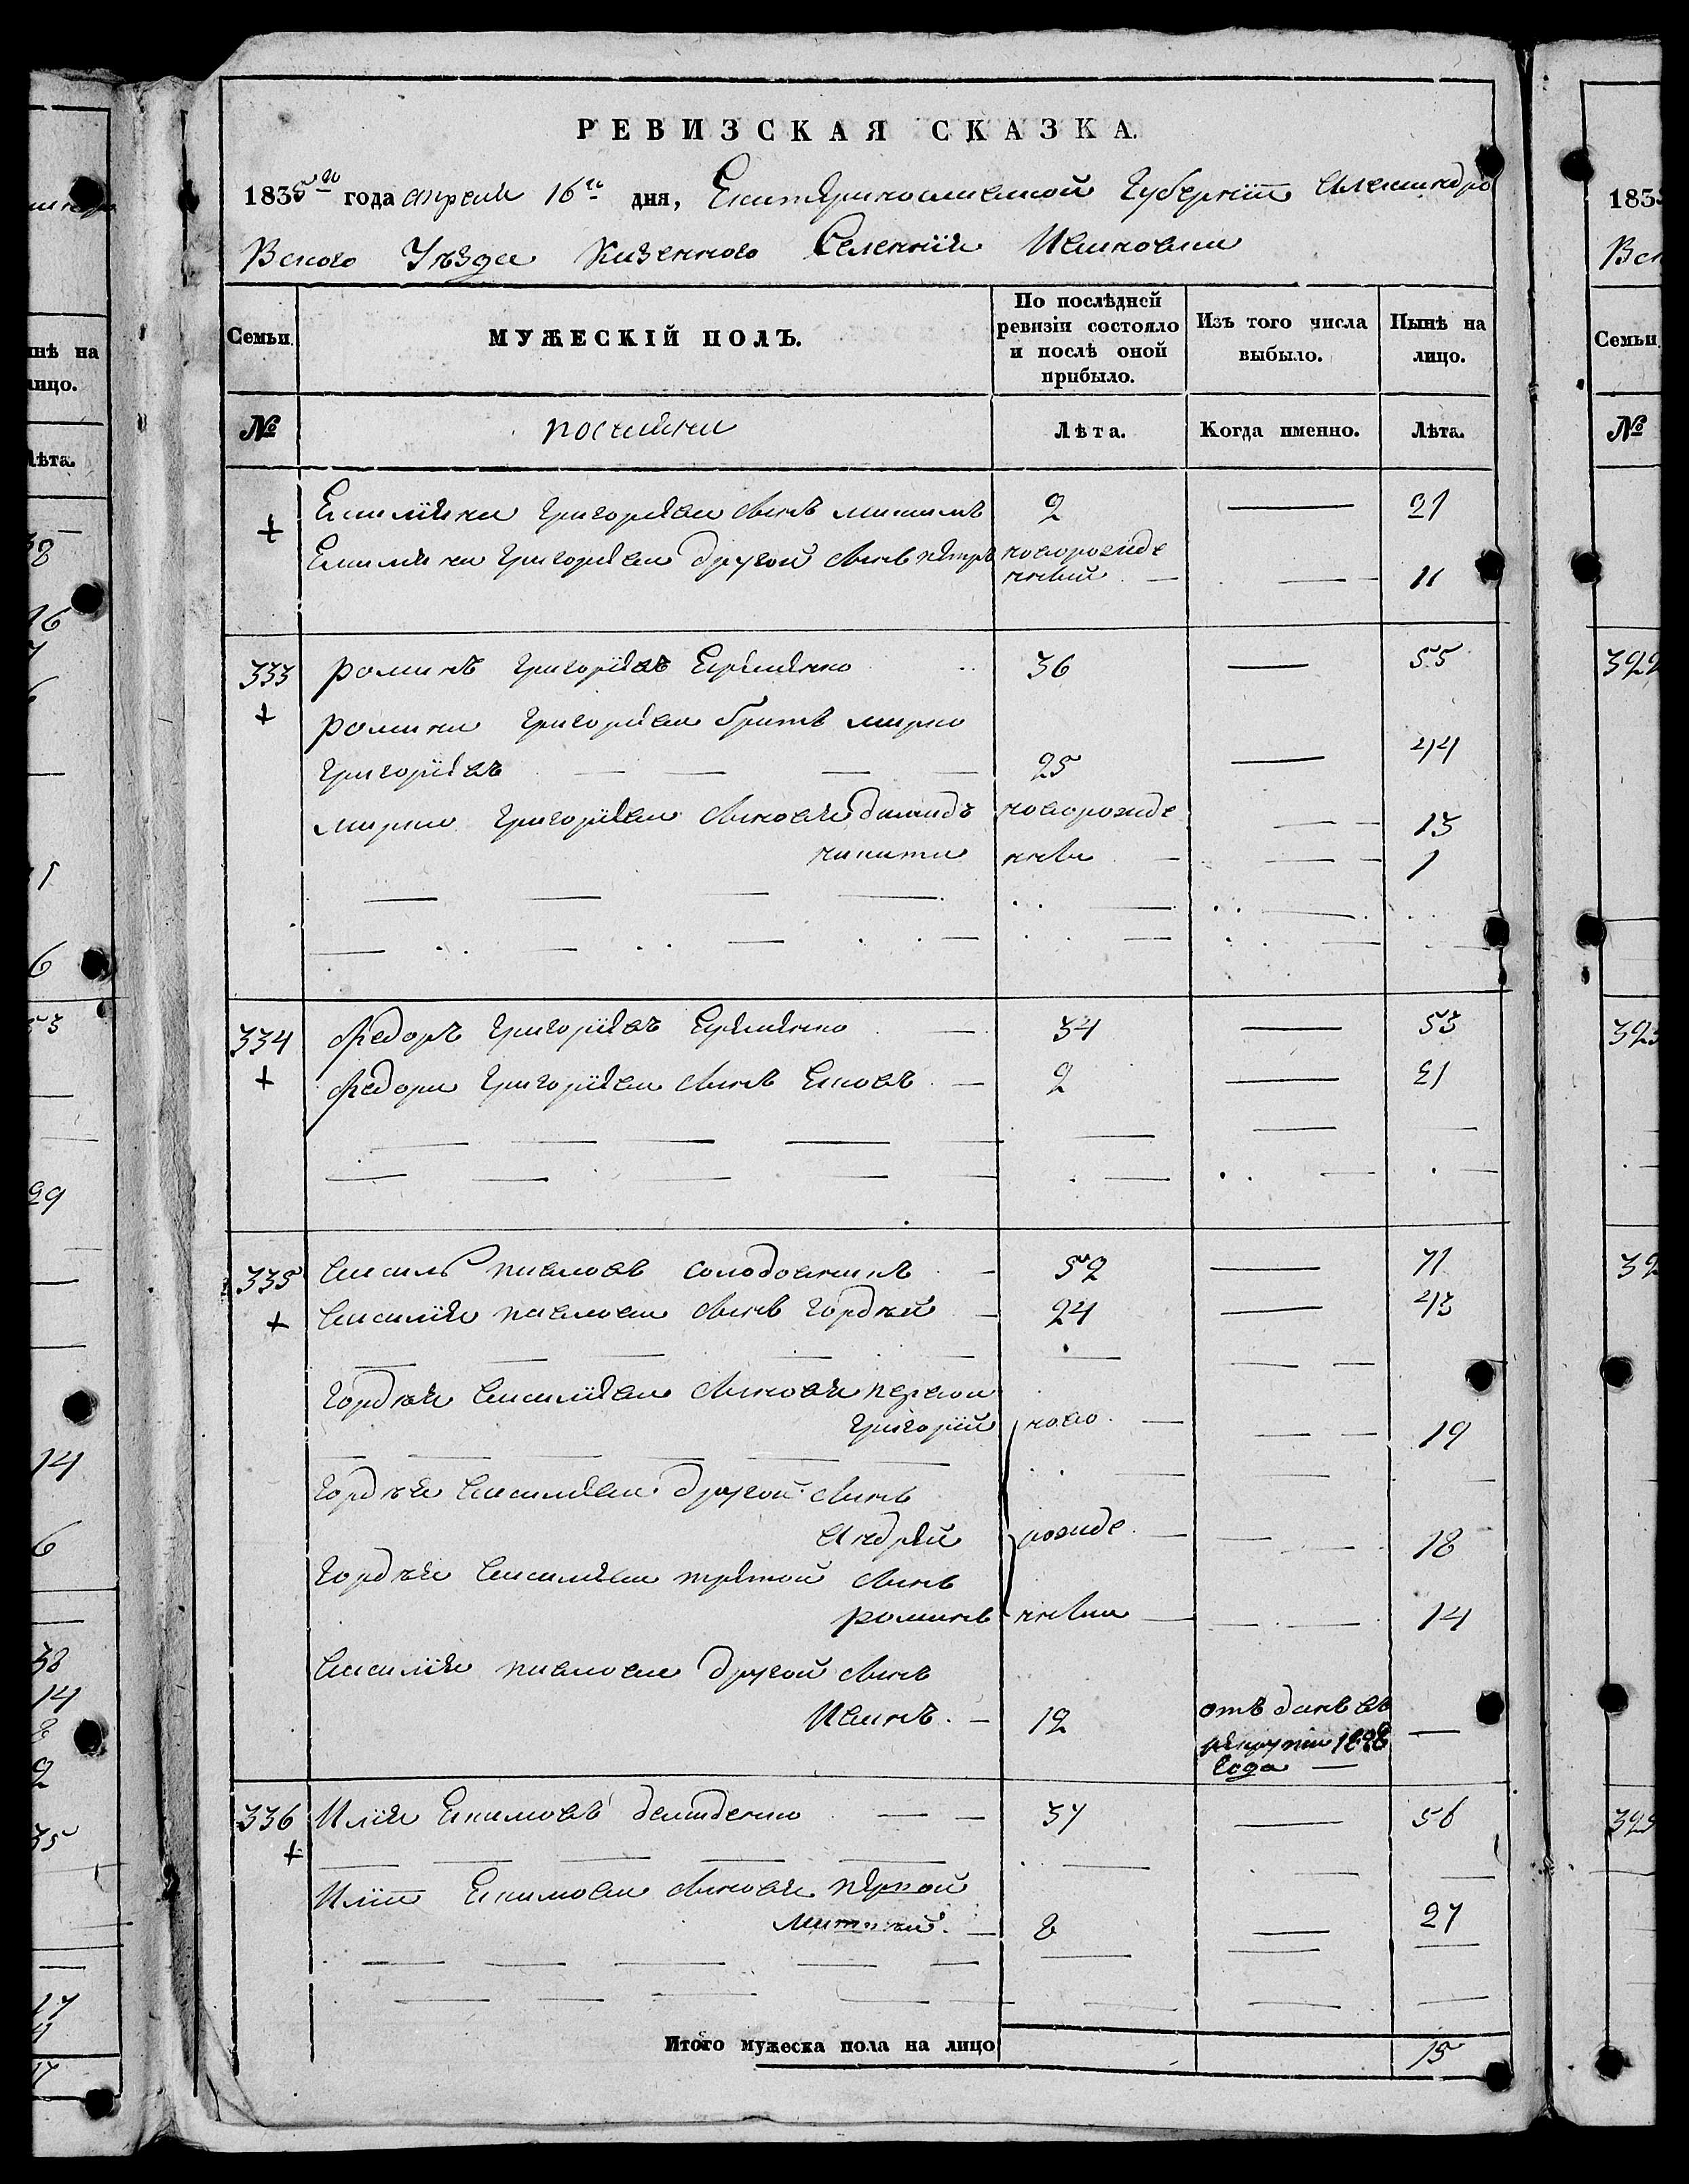 РЕВИЗСКАЯ СКАЗКА.
1835го года апреля 16го дня, Екатеринославской Губернии Алексндро
Вского Уѣзда Казенного Селения Ивановки
Семьи
МУЖЕСКІЙ ПОЛЪ.
По послѣдней ревизіи состояло и послѣ оной прибыло.
Изъ того числа выбыло.
Нынѣ на лицо.
№
Лѣта.
Когда именно.
Лѣта.
+ Емилияна Григориева сынъ 2 — 21
Емилияна Григориева другой сынъ петръ новорожде
нный — — 11
333 романъ Григориевъ Еременко 36 — 55
+ романа Григориева братъ марко
Григориевъ 25 — 44
марка Григориева сыновя демидъ новорожде — 13
никита нны — 1
334 Федоръ Григориевъ Еременко — 34 — 53
+ Федора Григориева сынъ Яковъ — 2 — 21
335 василь павловъ — 52 — 71
+ василия павлова сынъ Гордѣй — 24 — 43
Гордѣя василиева сыновя первои
Григорий ново — — 19
Гордѣя василиева другой сынъ
Андрей рожде — — 18
Гордѣя василиева третой сынъ
романъ нны — — 14
василия павлова другой сынъ
Иванъ — 12 отъ данъ въ
рекруты 1828
года —
336 Илия Екимовъ демиденко — 37 — 56
+
Илии Екимова сыновя первой
— 8 — 27
Итого мужеска пола на лицо 15
1835
Вск
Семьи
№
322
323
32
325
инѣ на
лицо.
Лѣта.